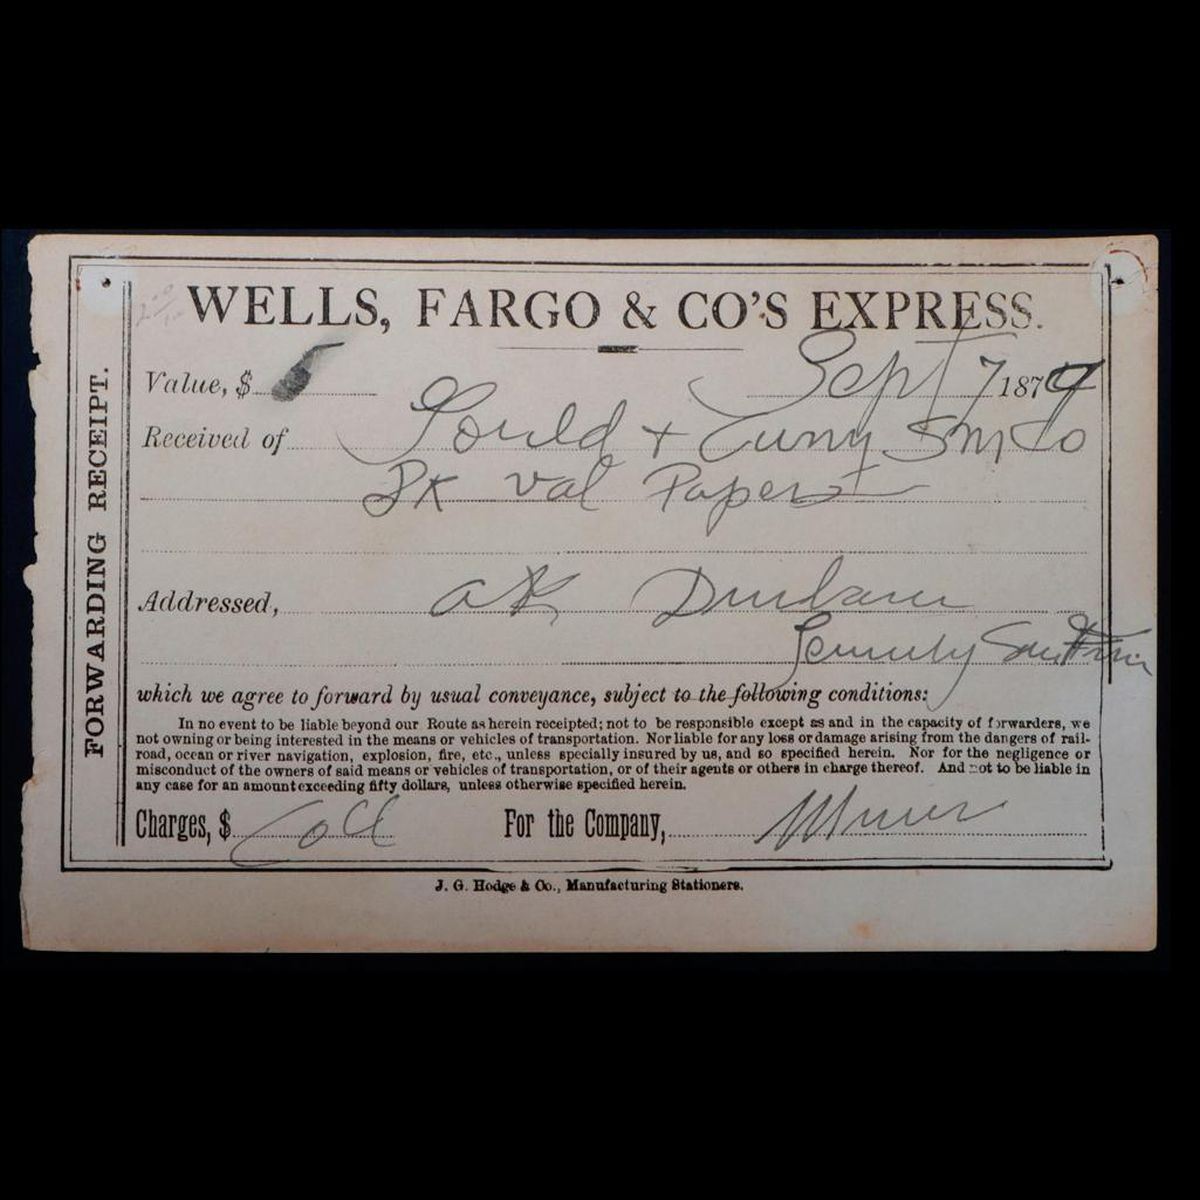 WELLS, FARGO & CO'S EXPRESS.
FORWARDING RECEIPT.
Value, $ Sept 7 1879
Received of Gould & Curry S M Co
Pk Val Papers
Addressed, A K Durham
which we agree to forward by usual conveyance, subject to the following conditions:
In no event to be liable beyond our Route as herein receipted; not to be responsible except as and in the capacity of forwarders, we
not owning or being interested in the means or vehicles of transportation. Nor liable for any loss or damage arising from the dangers of rail-
road, ocean or river navigation, explosion, fire, etc., unless specially insured by us, and so specified herein. Nor for the negligence or
misconduct of the owners of said means or vehicles of transportation, or of their agents or others in charge thereof. And not to be liable in
any case for an amount exceeding fifty dollars, unless otherwise specified herein.
Charges, $ Coll For the Company,
J. G. Hodge & Co., Manufacturing Stationers.